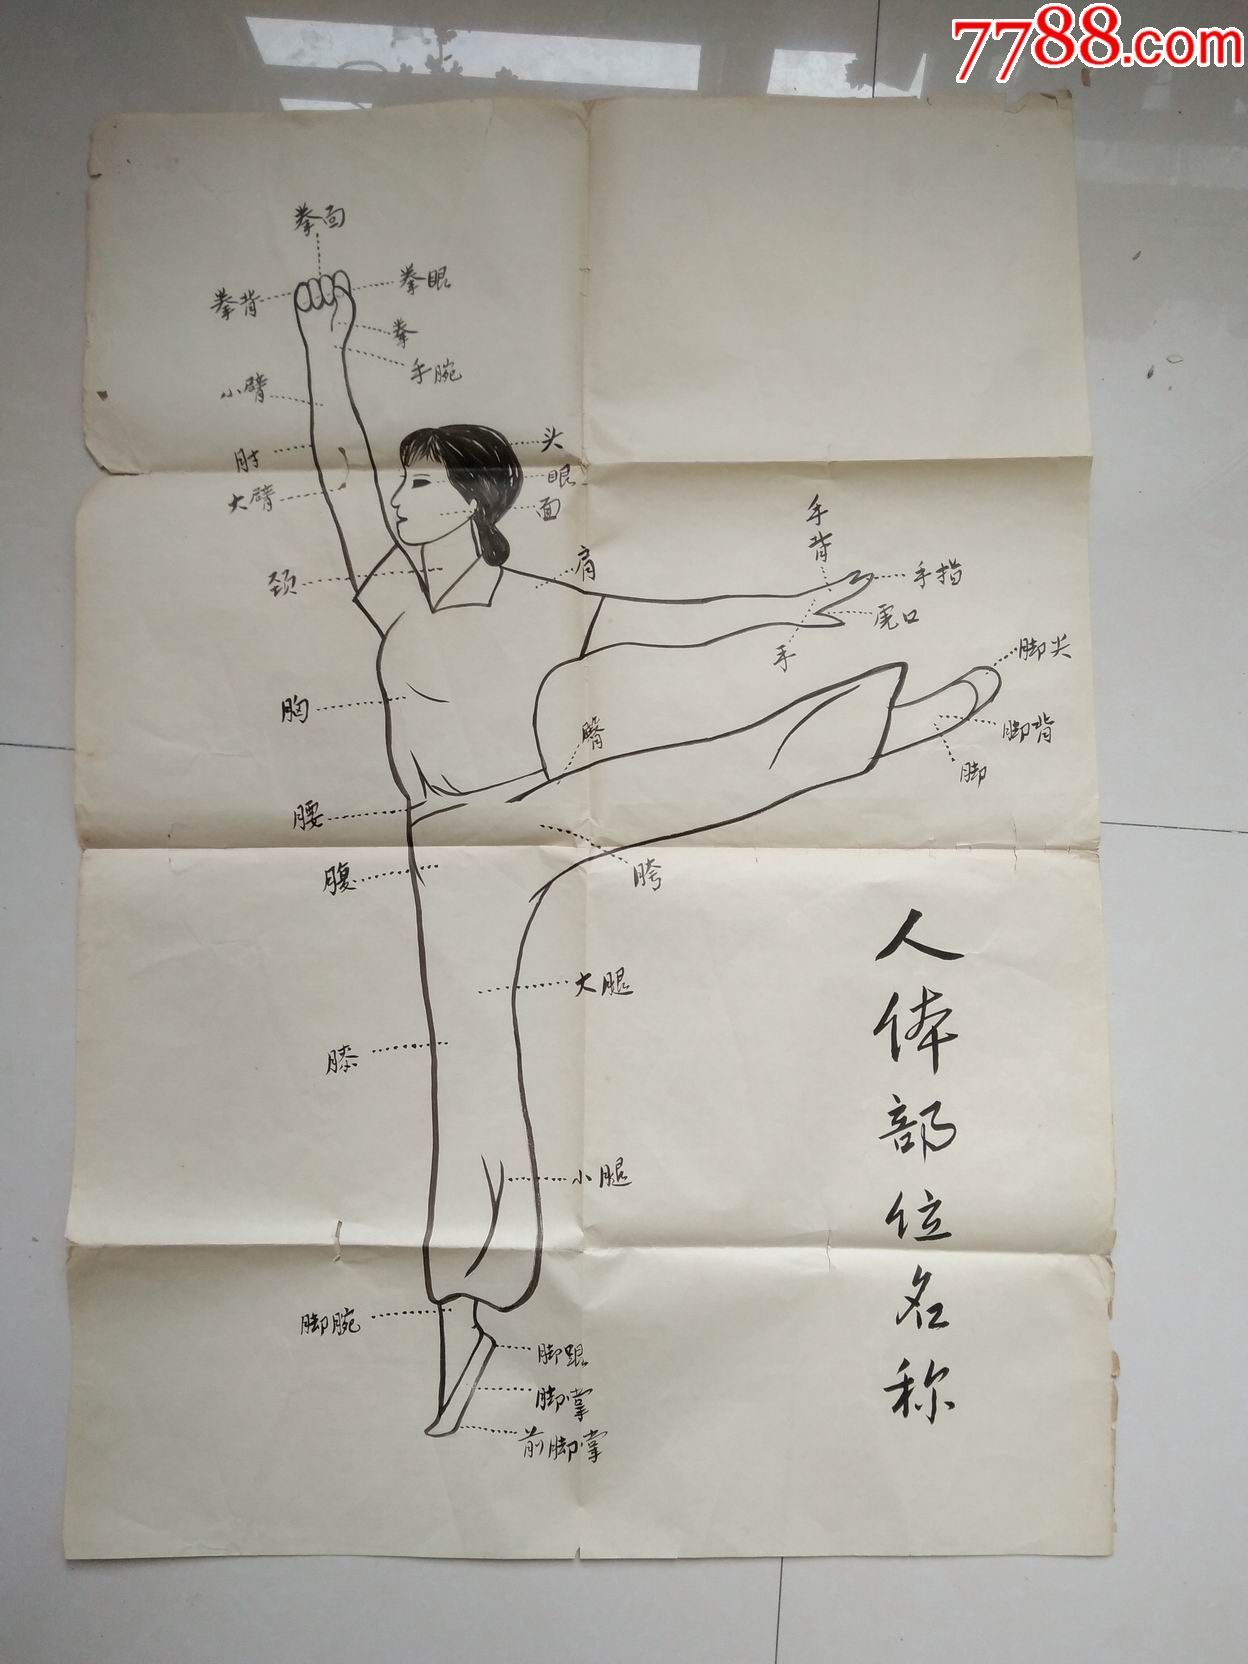 7788.com
拳面
拳背
拳眼
拳
手腕
小臂
肘
大臂
头
眼
面
颈
肩
手背
手指
虎口
手
脚尖
脚背
脚
胸
臀
腰
腹
胯
大腿
膝
小腿
脚腕
脚跟
脚掌
前脚掌
人体部位名称